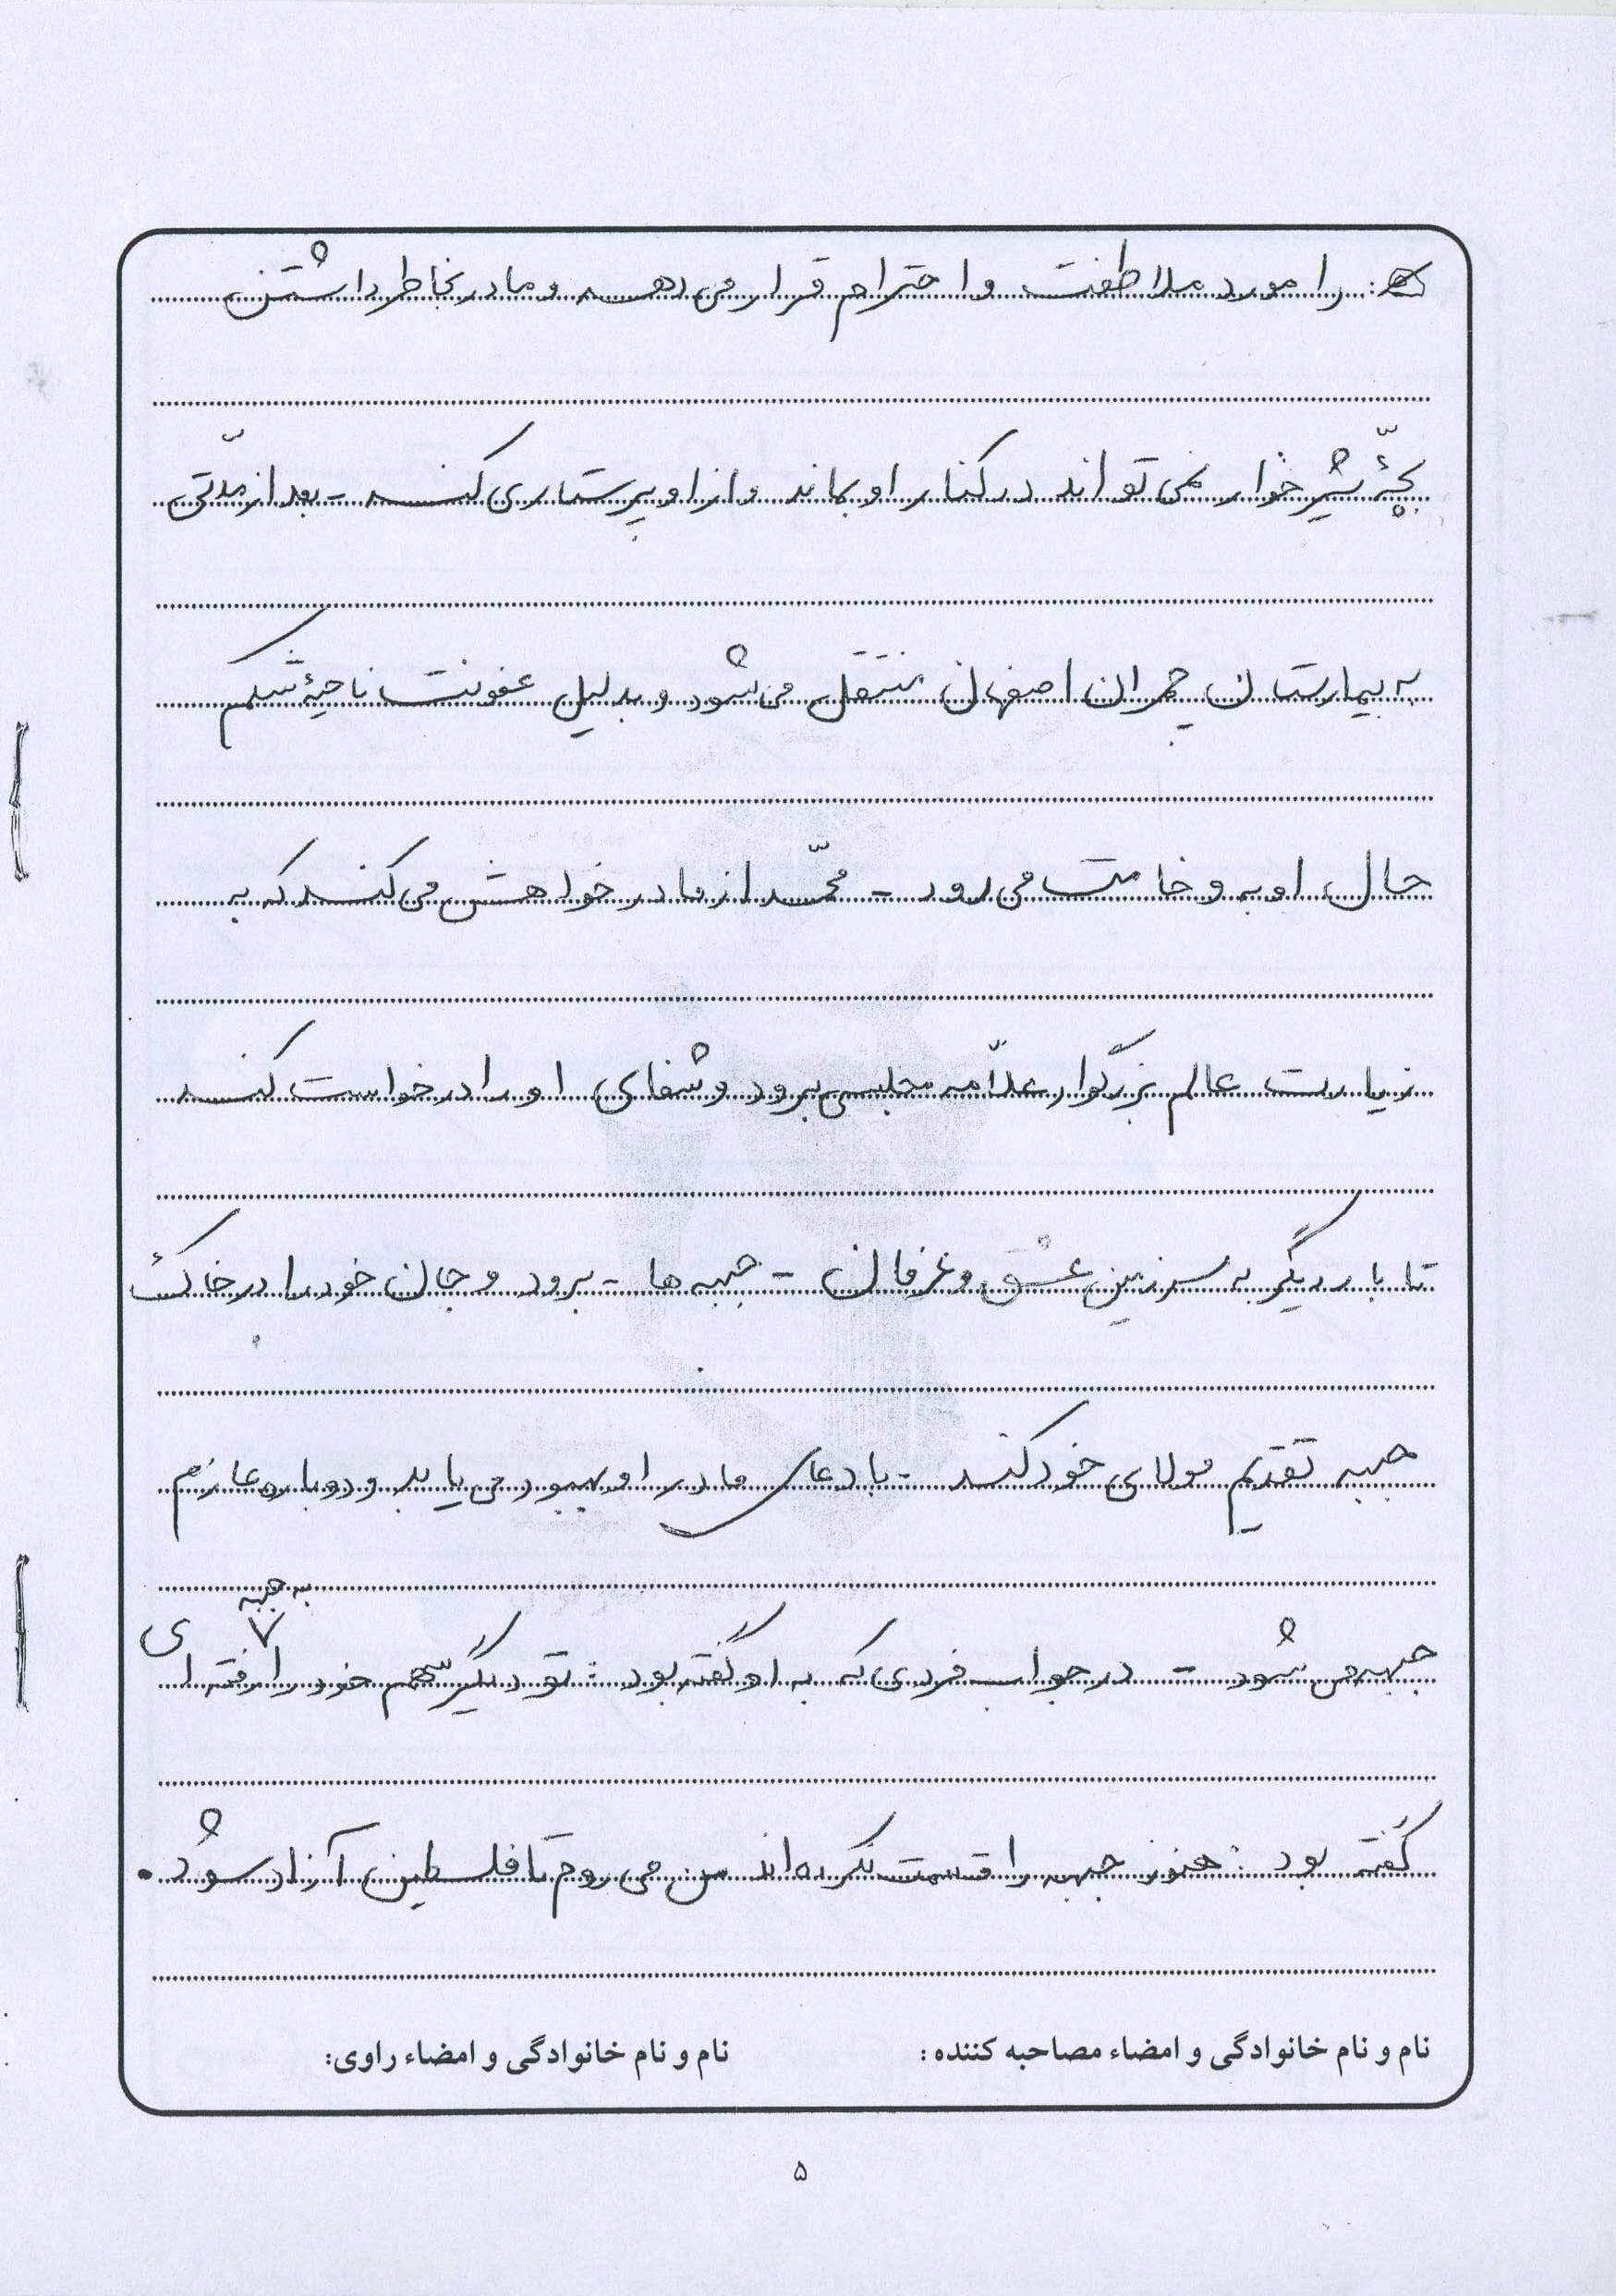 را مورد ملاطفت و احترام قرار می دهد و مادر بخاطر داشتن
بچّۀ شیرخوار نمی تواند در کنار او بماند و از او پرستاری کند - بعد از مدّتی
به بیمارستان چمران اصفهان منتقل می شود و بدلیل عفونت ناحیۀ شکم
حال او به وخامت می رود - محمّد از مادر خواهش می کند که به
زیارت عالم بزرگوار علّامه مجلسی برود و شفای او را درخواست کند
تا بار دیگر به سرزمین عشق و عرفان - جبهه ها - برود و جان خود را در خاک
جبهه تقدیم مولای خود کند - با دعای مادر او بهبود می یابد و دوباره عازم
جبهه می شود - در جواب فردی که به او گفته بود : تو دیگر سهم خود را به جبهه رفته ای
گفته بود : هنوز جبهه را قسمت نکرده اند من می روم تا فلسطین آزاد شود .
نام و نام خانوادگی و امضاء مصاحبه کننده : نام و نام خانوادگی و امضاء راوی:
۵